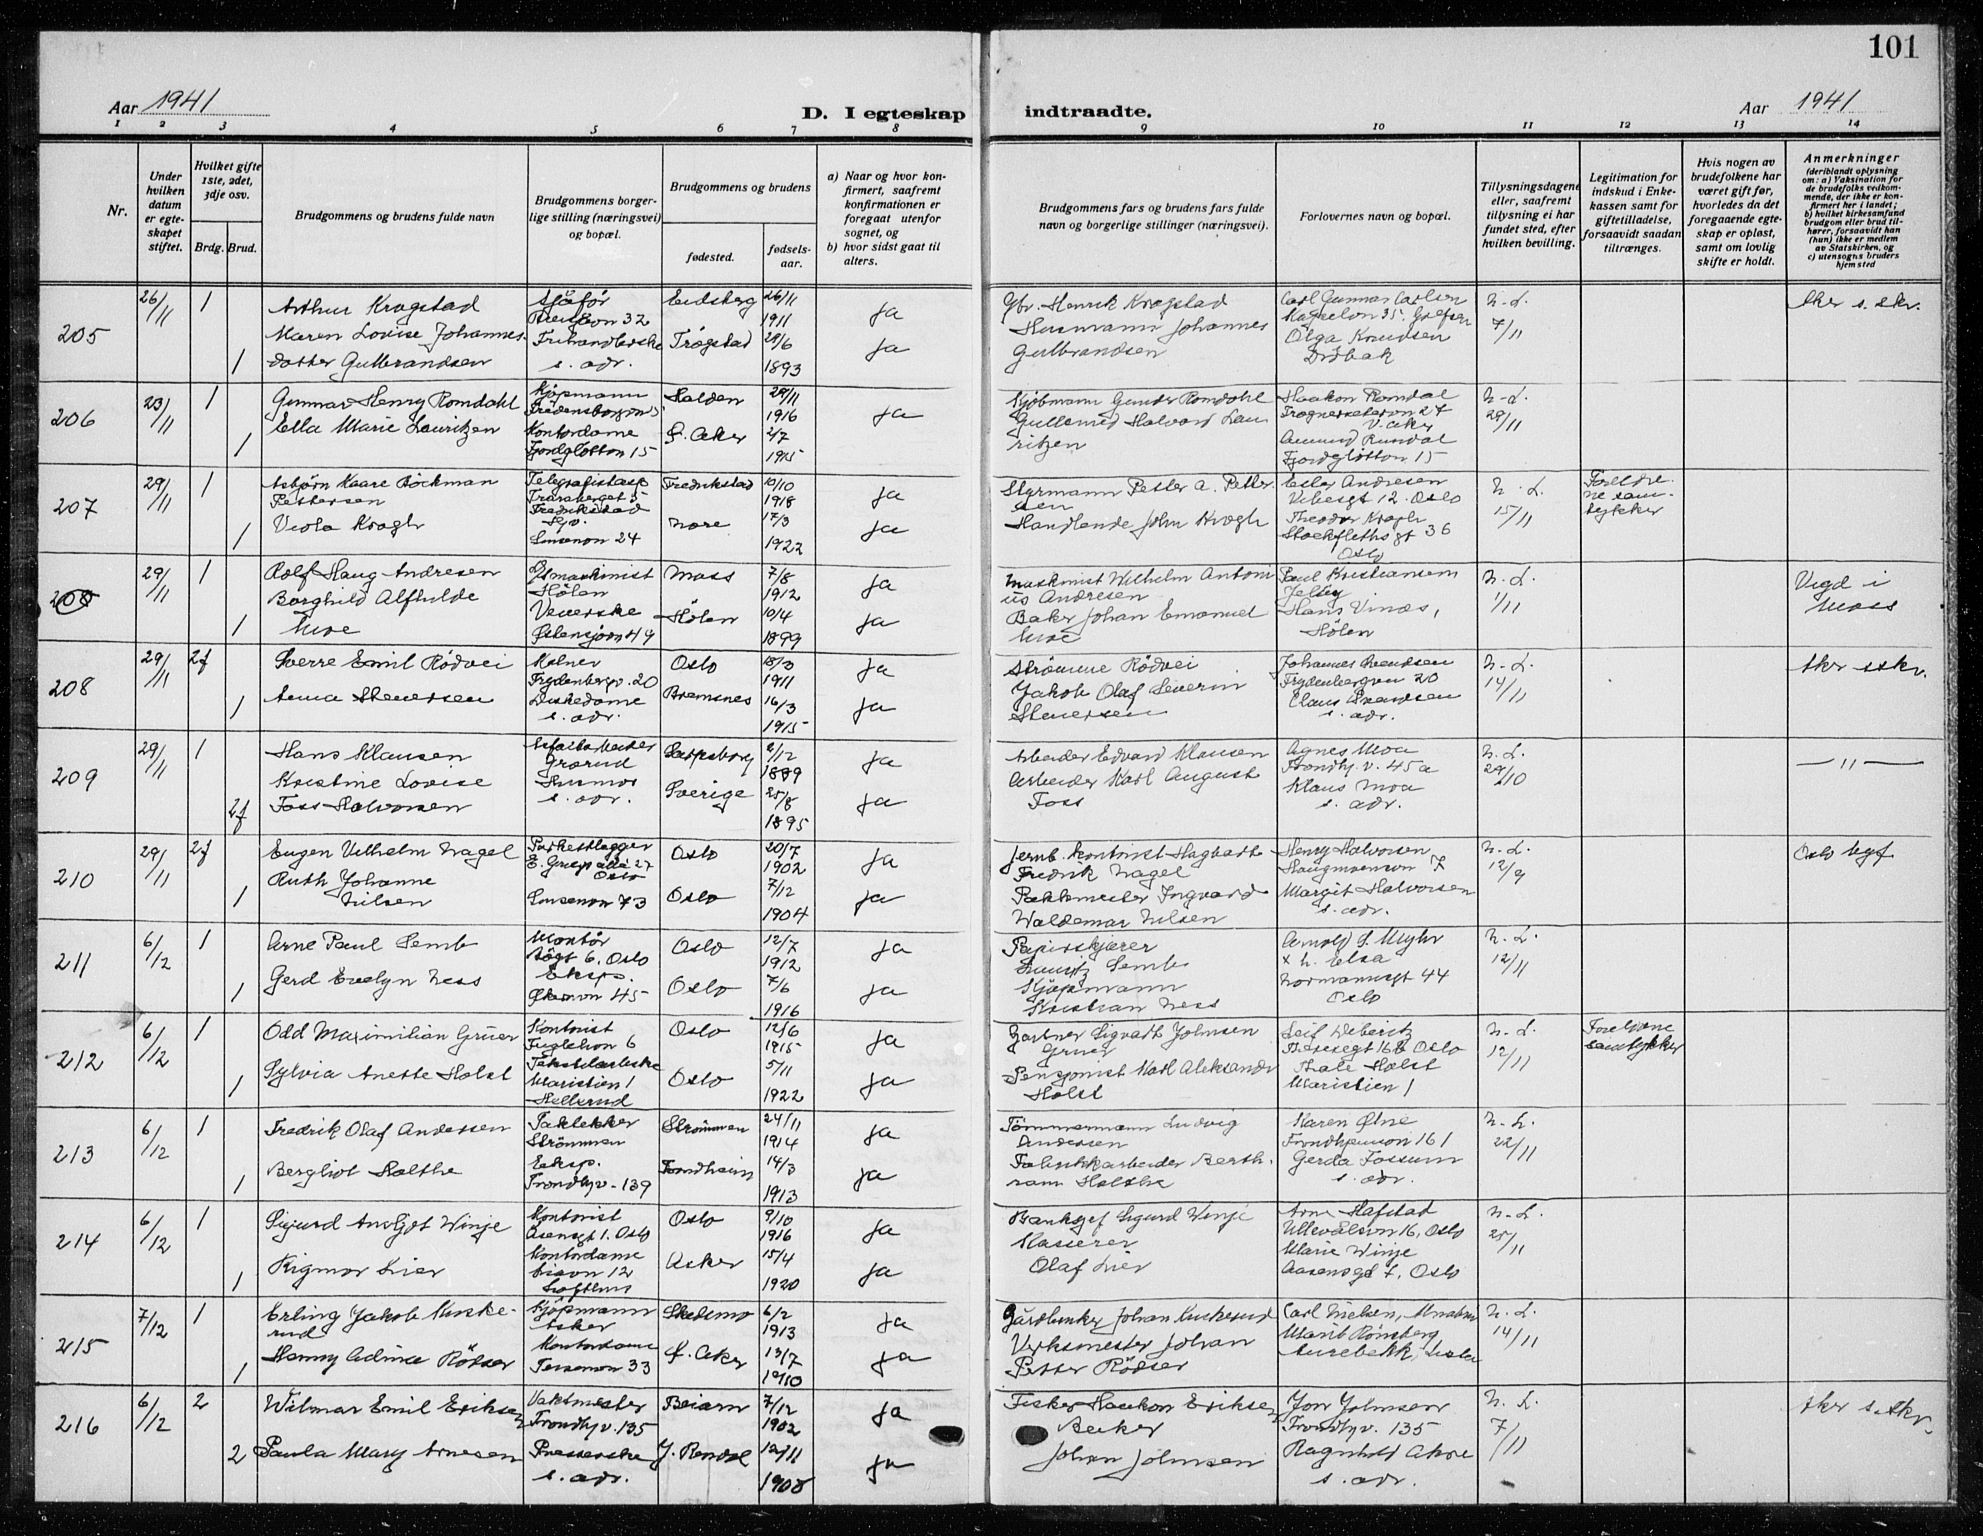 101
Aar 1941
D. I egteskap indtraadte.
Aar 1941
1 2 3 4 5 6 7 8 9 10 11 12 13 14
Nr.
Under hvilken datum er egteskapet stiftet.
Hvilket gifte 1ste, 2det, 3dje osv.
Brdg. Brud.
Brudgommens og brudens fulde navn
Brudgommens borgerlige stilling (næringsvei) og bopæl.
Brudgommens og brudens
fødested.
fødselsaar.
a) Naar og hvor konfirmert, saafremt konfirmationen er foregaat utenfor sognet, og
b) hvor sidst gaat til alters.
Brudgommens fars og brudens fars fulde navn og borgerlige stillinger (næringsvei).
Forlovernes navn og bopæl.
Tillysningsdagene eller, saafremt tillysning ei har fundet sted, efter hvilken bevilling.
Legitimation for indskud i Enkekassen samt for giftetilladelse, forsaavidt saadan tiltrænges.
Hvis nogen av brudefolkene har været gift før, hvorledes da det foregaaende egteskap er opløst, samt om lovlig skifte er holdt.
Anmerkninger
(deriblandt oplysning om: a) Vaksination for de brudefolks vedkommende, der ikke er konfirmert her i landet; b) hvilket kirkesamfund brudgom eller brud tilhører, forsaavidt han (hun) ikke er medlem av Statskirken, og c) utensogns bruders hjemsted
205 26/11 1 Arthur Krogstad Sjåfør Eidsberg 26/11 1911 Ja
Maren Lovise Johannes- Trøgstad
1 datter Gulbrandsen s. adr. 1893 Ja
Gbr. Henrik Krogstad Carl Gunnar Carlsen N. L.
Husmann Johannes 7/11
Gulbrandsen Olga Knudsen
Drøbak
Aker s. skr.
206 23/11 1 Gunnar Henry Romdahl Kjøpmann Halden 29/11 1916 Ja
1 Ella Marie Lauritzen Kontordame Ø. Aker 2/7 1915
Fjordgløtten 15
Kjøbmann Gunder Romdahl Haakon Romdal N. L.
Gullsmed Halvard Lauritzen 29/11
V. Aker
Amund Rundal
Fjordgløtten 15
207 29/11 1 Asbjørn Kaare Böckman Pettersen Telegrafistasp Fredrikstad 10/10 1918 Ja
1 Viola Kragh Sinsenvn 24 Nore 17/3 1922 Ja
Styrmann Petter A. Pettersen Vibesgt 12. Oslo N. L.
Handlende John Kragh Theodor Kragh 15/11
Stockflethsgt 36
Oslo
Foreldrene samtykker
208 29/11 1 Rolf Haug Andresen Hölen Moss 7/8 1912 Ja
1 Borghild Alfhilde Moe Veverske Hölen 10/4 1899 Ja
Østensjøvn 49
Maskinist Wilhelm Antonius Andresen Paul Kristiansen N. L.
Baker Johan Emanuel Moe Jeløy 1/11
Hans Vinæs,
Hölen
Vigd i Moss
208 29/11 2f Sverre Emil Rödvei Kelner Oslo 18/3 1911 Ja
Frydenbergv. 20
1 Anna Stenersen Diskedame Bremsnes 16/3 1915 Ja
s. adr.
Strömme Rödvei Johannes Svendsen N. L.
Jakob Olaf Severin Stenersen Frydenbergvn 20 14/11
Claus Svendsen
s. adr.
Aker s skr.
209 29/11 1 Hans Klausen Grorud Sarpsborg 8/12 1889 Ja
2f Kristine Lovise Foss-Halvorsen Husmor Sverige 25/8 1895 Ja
s. adr.
Arbeider Edvard Klausen Agnes Moa N. L.
Arbeider Karl August Foss Trondhj. v. 45a 29/10
Klaus Moa
s. adr.
— " —
210 29/11 2f Eugen Vilhelm Nagel Parkettlegger Oslo 20/7 1902 Ja
Oslo
1 Ruth Johanne Nilsen Sinsenvn 73 Oslo 7/12 1904 Ja
Jernb. kontorist Hagbarth Fredrik Nagel Henry Halvorsen N. L.
Pakkmester Ingvard Waldemar Nilsen Haugmoenvn 7 12/9
Margit Halvorsen
s. adr.
Oslo bgf
211 6/12 1 Arne Paul Semb Montör Oslo 12/7 1912 Ja
1 Gerd Evelyn Ness Eksp. Oslo 7/6 1916 Ja
Økernvn 45
Papirskjærer Arnold G. Myhr N. L.
Lauritz Semb & h. Elsa 12/11
Kjöpmann Normannsgt 44
Kristian Ness Oslo
212 6/12 1 Odd Maximilian Grüer Kontorist Oslo 12/6 1915 Ja
Fuglelien 6
1 Sylvia Anette Holst Maristien 1 Oslo 5/11 1922 Ja
Hellerud
Gartner Sigvath Johnsen Grüer N. L.
Pensjonist Karl Aleksander Holst Thale Holst 12/11
Maristien 1
Foreldrene samtykker
213 6/12 1 Fredrik Olaf Andersen Taktekker Strömmen 24/11 1914 Ja
Strömmen
1 Bergliot Holthe Eksp. Trondheim 14/3 1913 Ja
Trondhjv. 139
Tömmermann Ludvig Andersen Karen Øine N. L.
Fabrikkarbeider Berthram Holthe Trondhjemsvn 161 22/11
Gerda Fossum
s. adr.
214 6/12 1 Sigurd Ansgjot Winje Kontorist Oslo 9/10 1916 Ja
Åsengt 1. Oslo
1 Rigmor Lier Kontordame Asker 15/4 1920 Ja
Lofthus
Banksjef Sigurd Winje Arne Hafstad N. L.
Kasserer Ullevålsvn 16, Oslo 25/11
Olaf Lier Marie Winje
Aasengt 1, Oslo
215 7/12 1 Erling Jakob Huskerud Kjöpmann Skedsmo 6/2 1913 Ja
Asker
1 Hanny Adine Rödser Kontordame Ø. Aker 13/7 1910 Ja
33
Gårdbruker Johan Huskerud Carl Nielsen, N. L.
Verksmester Johan Marit Rönsberg 14/11
Petter Rödser
216 6/12 2 Wilmar Emil Eriksen Vaktmester Beiarn 7/12 1902 Ja
Trondhjv. 135
2 Paula Mary Arnesen Presserske Y. Rendal 12/11 1908 Ja
s. adr.
Fisker Haakon Eriksen Jon Johnsen N. L.
Becker Trondhjv. 135 7/11
Johan Johnsen Ragnhild Akre
s. adr.
Aker s. skr.